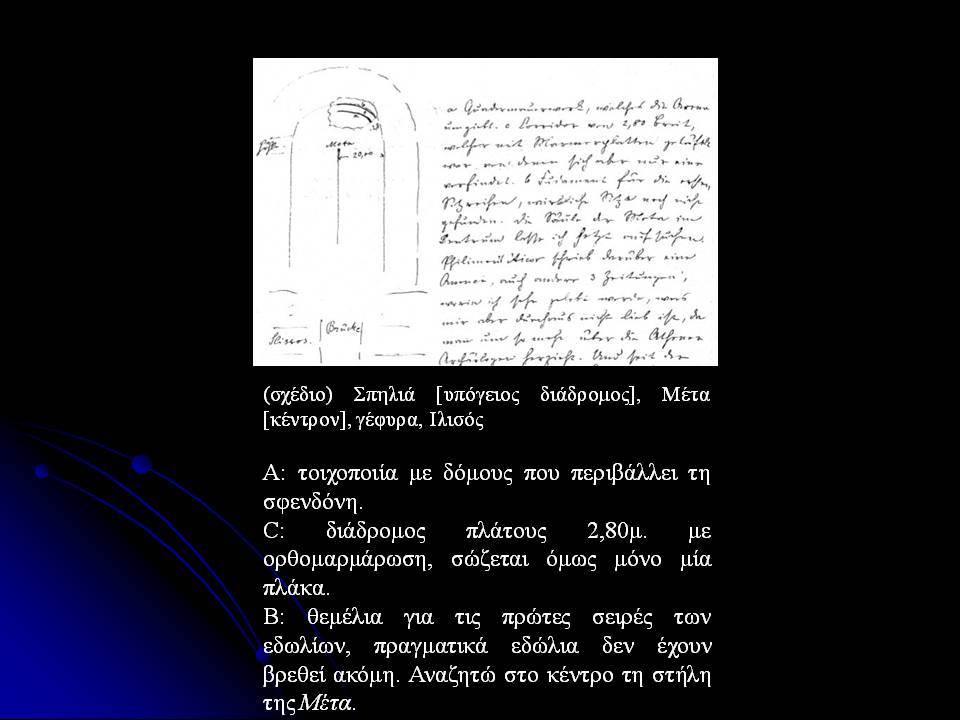 Meta
20,00
Brücke
Ilissos.
a Quadermauerwerk, welches die Arena
umgiebt. c Corridor von 2,80 breit,
welcher mit Marmorplatten
war, von denen sich aber nur eine
vorfindet. b Fundament für die ersten
Sitzreihen, wirkliche Sitze noch nicht
gefunden. Die Säule der Meta im
Centrum lasse ich jetzt aufsuchen.
schrieb darüber eine
auch andere 3 Zeitungen,
worin ich sehr gelobt werde, was
mir aber durchaus nicht lieb ist, da
man um so mehr über die Athener
Archäologen herzieht. Und seit der
(σχέδιο) Σπηλιά [υπόγειος διάδρομος], Μέτα
[κέντρον], γέφυρα, Ιλισός
Α: τοιχοποιία με δόμους που περιβάλλει τη
σφενδόνη.
C: διάδρομος πλάτους 2,80μ. με
ορθομαρμάρωση, σώζεται όμως μόνο μία
πλάκα.
Β: θεμέλια για τις πρώτες σειρές των
εδωλίων, πραγματικά εδώλια δεν έχουν
βρεθεί ακόμη. Αναζητώ στο κέντρο τη στήλη
της Μέτα.